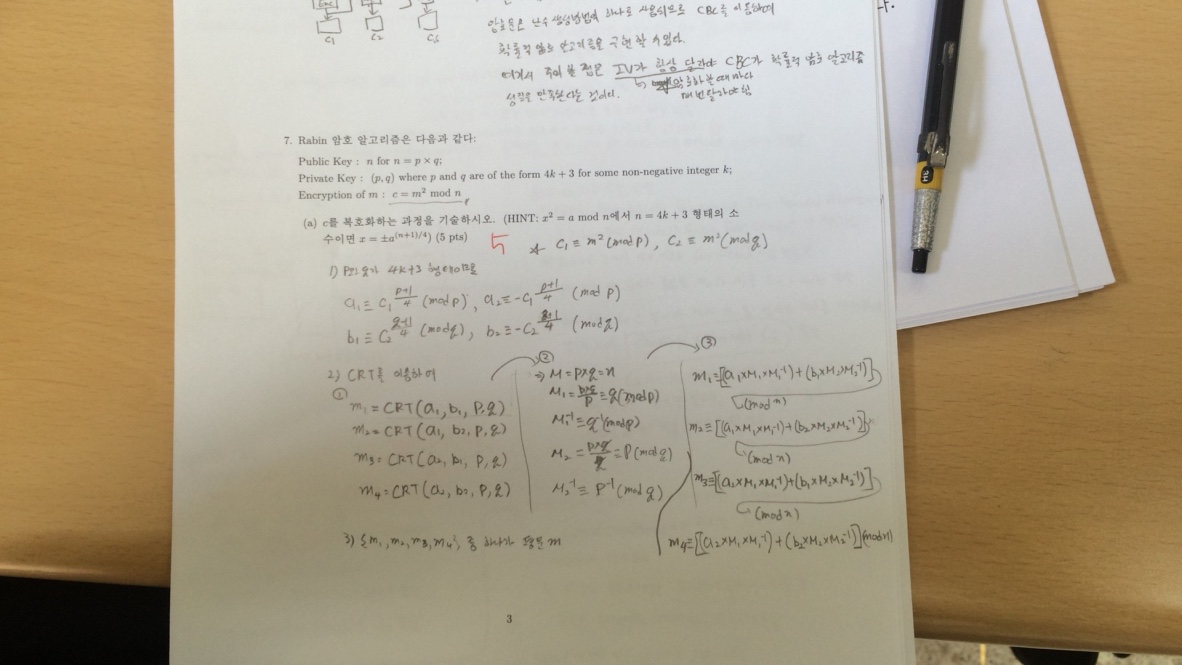 C1 C2 C3
암호문은 난수 생성방법의 하나로 사용되므로 CBC를 이용하여
확률적 암호 알고리즘을 구현할 수 있다.
여기서 주의할 점은 IV가 항상 달라야 CBC가 확률적 암호 알고리즘
성질을 만족한다는 것이다.
암호화할 때마다
매번 달라야 함
다.
7. Rabin 암호 알고리즘은 다음과 같다:
Public Key : n for n = p × q;
Private Key : (p, q) where p and q are of the form 4k + 3 for some non-negative integer k;
Encryption of m : c = m² mod n
(a) c를 복호화하는 과정을 기술하시오. (HINT: x² = a mod n에서 n = 4k + 3 형태의 소
수이면 x = ±a^((n+1)/4)) (5 pts)
5
* C1 ≡ m² (mod p), C2 ≡ m² (mod q)
1) P와 q가 4k+3 형태이므로
a1 ≡ C1^((p+1)/4) (mod p), a2 ≡ -C1^((p+1)/4) (mod p)
b1 ≡ C2^((q+1)/4) (mod q), b2 ≡ -C2^((q+1)/4) (mod q)
2) CRT를 이용하여
①
m1 = CRT(a1, b1, P, q)
m2 = CRT(a1, b2, P, q)
m3 = CRT(a2, b1, P, q)
m4 = CRT(a2, b2, P, q)
②
→ M = p×q = n
M1 = p×q/p = q (mod p)
M1⁻¹ ≡ q⁻¹ (mod p)
M2 = p×q/q = P (mod q)
M2⁻¹ ≡ P⁻¹ (mod q)
③
m1 ≡ [(a1×M1×M1⁻¹)+(b1×M2×M2⁻¹)]
(mod n)
m2 ≡ [(a1×M1×M1⁻¹)+(b2×M2×M2⁻¹)]
(mod n)
m3 ≡ [(a2×M1×M1⁻¹)+(b1×M2×M2⁻¹)]
(mod n)
m4 ≡ [(a2×M1×M1⁻¹)+(b2×M2×M2⁻¹)] (mod n)
3) {m1, m2, m3, m4} 중 하나가 평문 m
3